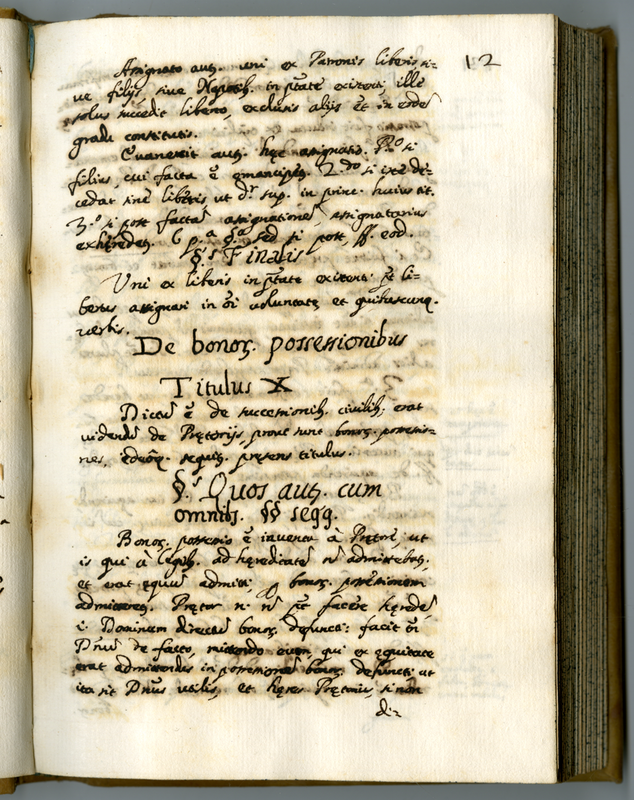 12
Assignato autꝫ. uni ex Patronis liberis si=
ve filijs sive Nepotib. in ptāte existenti, ille
solus succedit liberto, exclusis alijs et in eodē
gradu constitutis.
Evanescit autꝫ. hęc assignatio. P.º si
filius, cui facta ē emancipetꝫ. 2.do si ex de=
cedat sine liberis ut dr. sup. in princ. huius tit.
3.º si post factā assignationē, assignatarius
exhęredetꝫ. sed si post, ff. eod.
§.s Finalis
Uni ex liberis in ptāte existenti pt li=
bertus assignari in oi voluntate, et quibuscunq.
verbis.
De bonoꝝ. possessionibus
Titulus X
Dictū ē de successionib. civilib. erat
videndū de Prętorijs, prout sunt bonoꝝ. possessio=
nes, sequitꝫ. pręsens titulus.
§.s Quos autꝫ. cum
omnibꝫ. §§ seqq.
Bonoꝝ. possessio ē inventa à Prętore, ut
is qui à Legib. ad hęreditatē nō admittebatꝫ,
et erat equū admitti, bonoꝝ. possessionem
admitteretꝫ. Prętor n. nō pt facere hęredē
i. Dominum directū bonoꝝ. defuncti: facit tn̄
Dnūm de facto, mittendo eum, qui ex equitate
erat admittendus in possessionē bonoꝝ. defuncti ut
ita sit Dnūs utilis, et hęres Prętorius, si non
di=